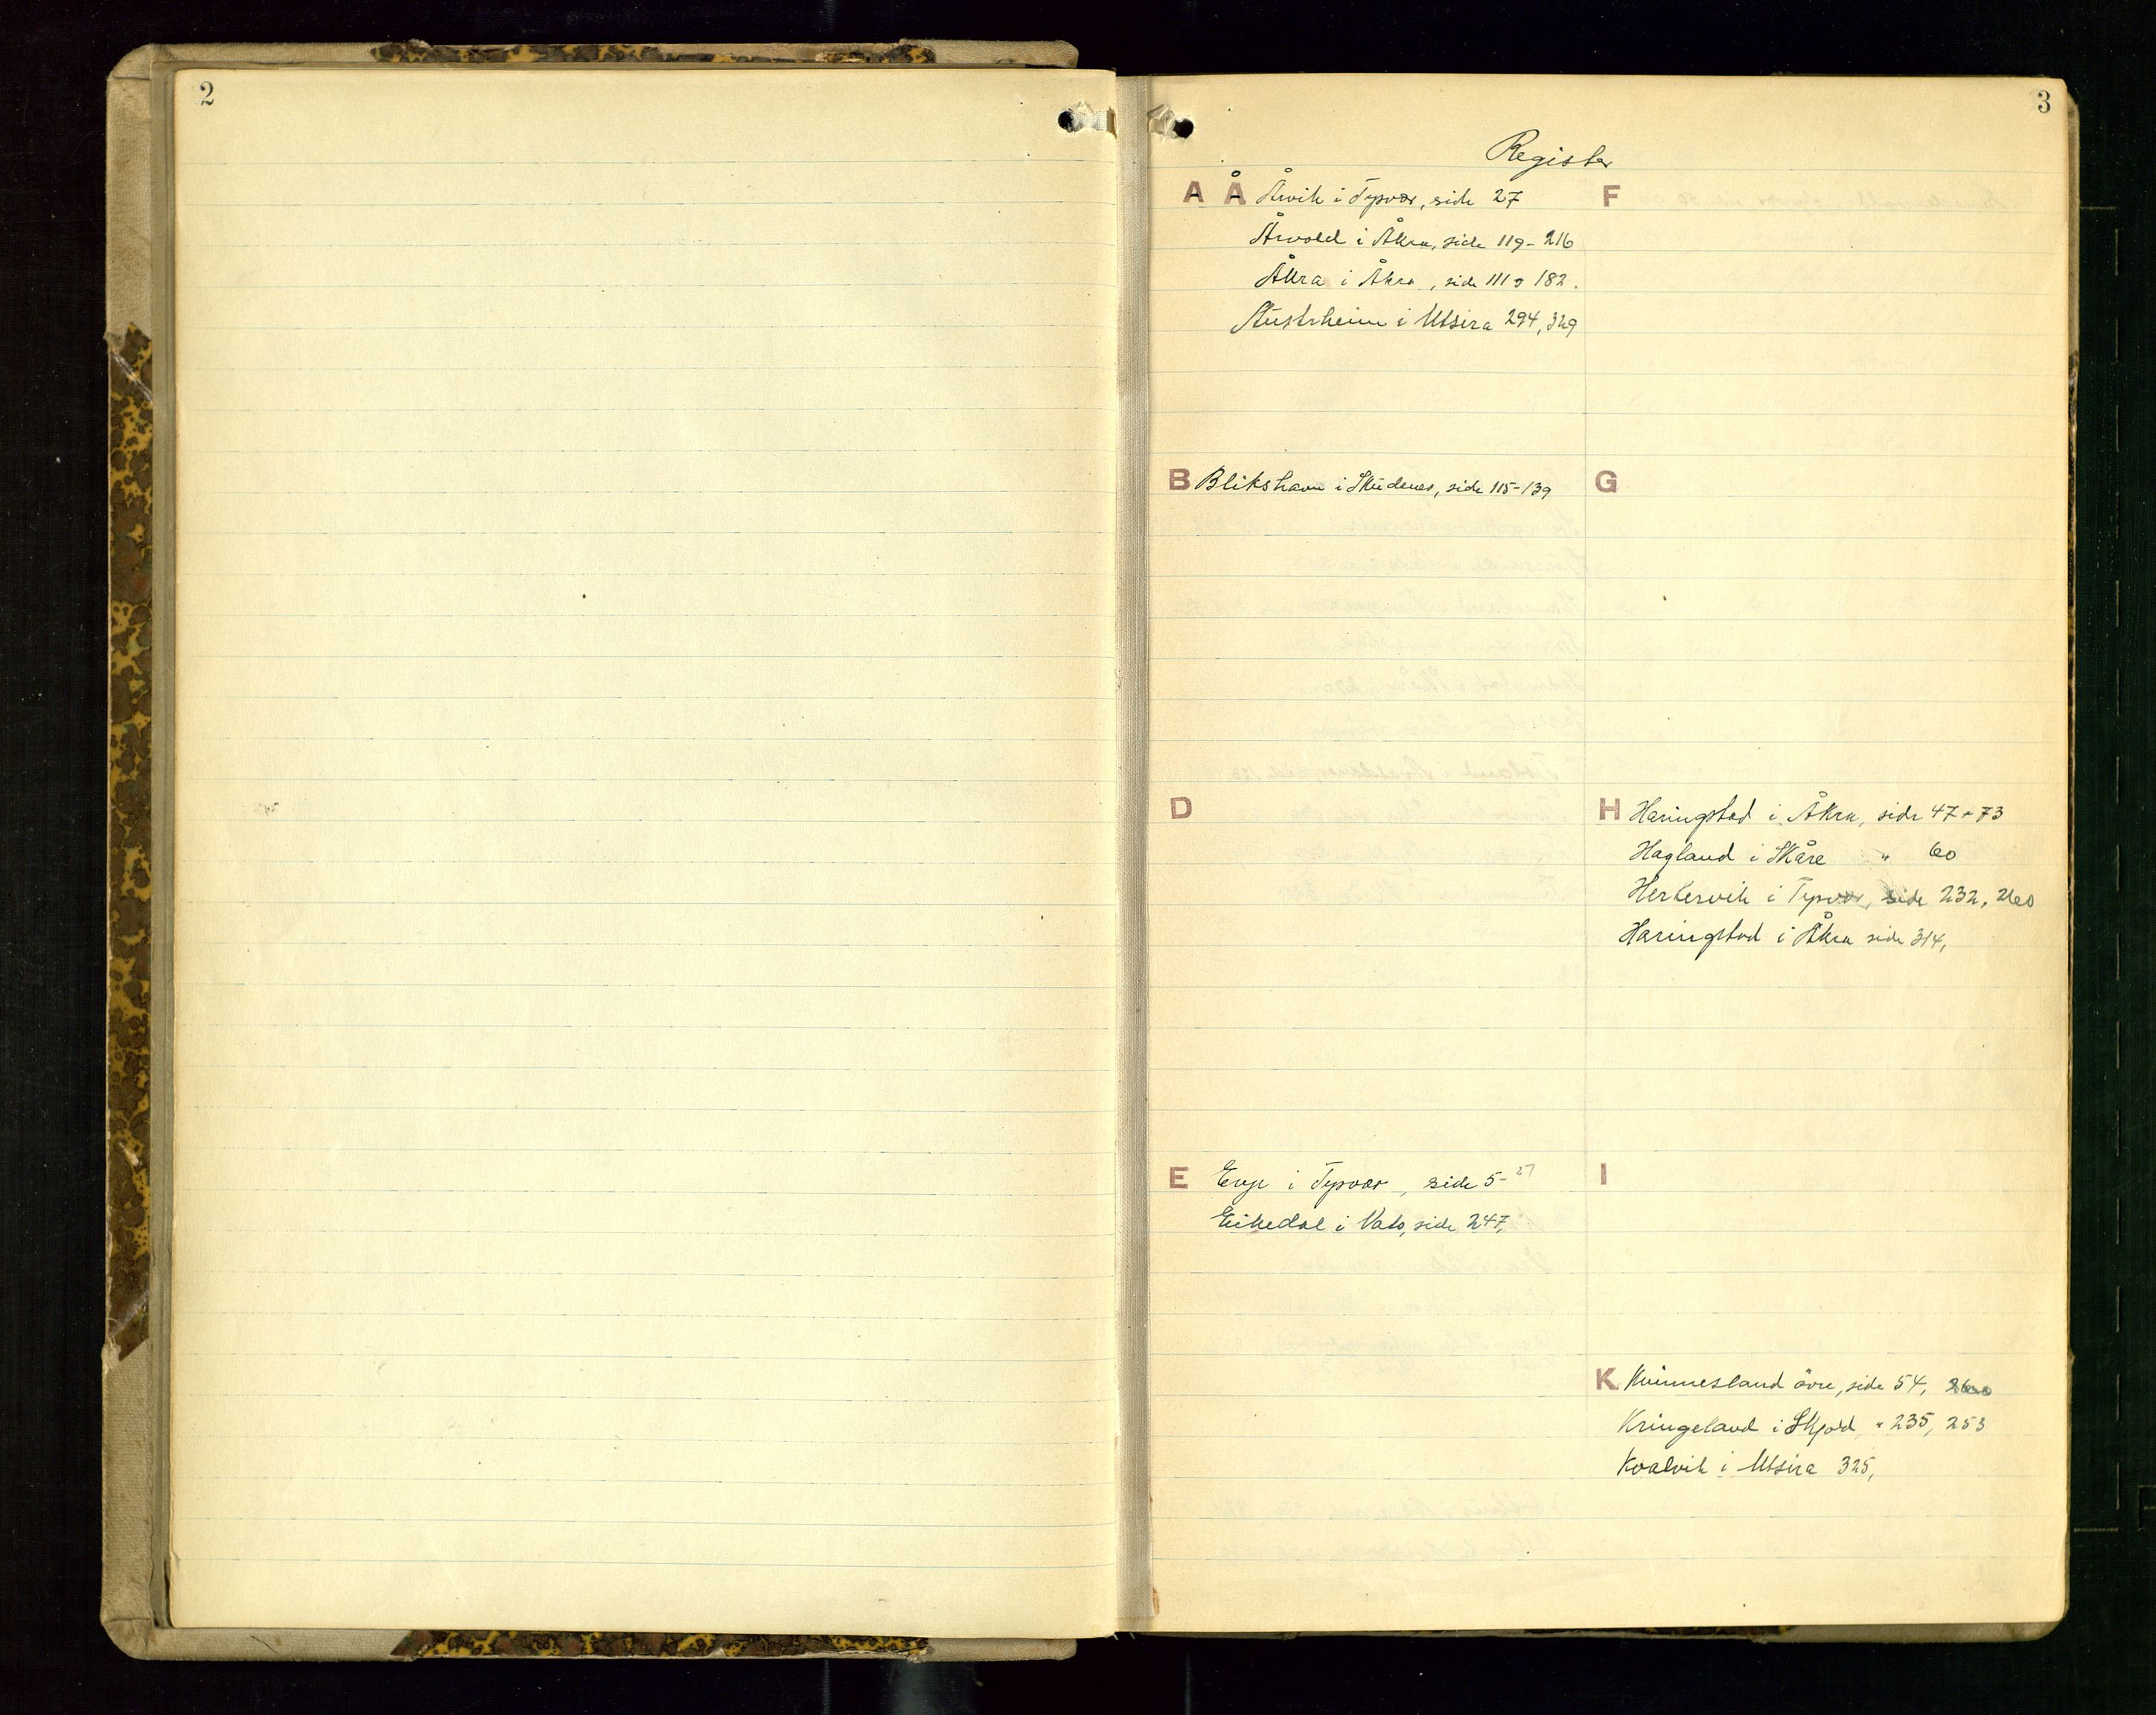 2
3
Register
A Å Årvik i Tysvær, side 27
Årvold i Åkra, side 119 - 216
Åkra i Åkra, side 111 o 182.
Austrheim i Utsira 294, 329
B Blikshavn i Skudenes, side 115-139
D
E Erge i Tysvær, side 5- 27
Eikedal i Vats, side 247,
F
G
H Haringstad i Åkra, side 47 - 73
Hagland i Skåre " 60
Herkervik i Tysvær, side 232, 260
Haringstad i Åkra side 314,
I
K Kvinnesland övre, side 54, 260
Kringeland i Skjold, " 235, 253
Kvalvik i Utsira 325,